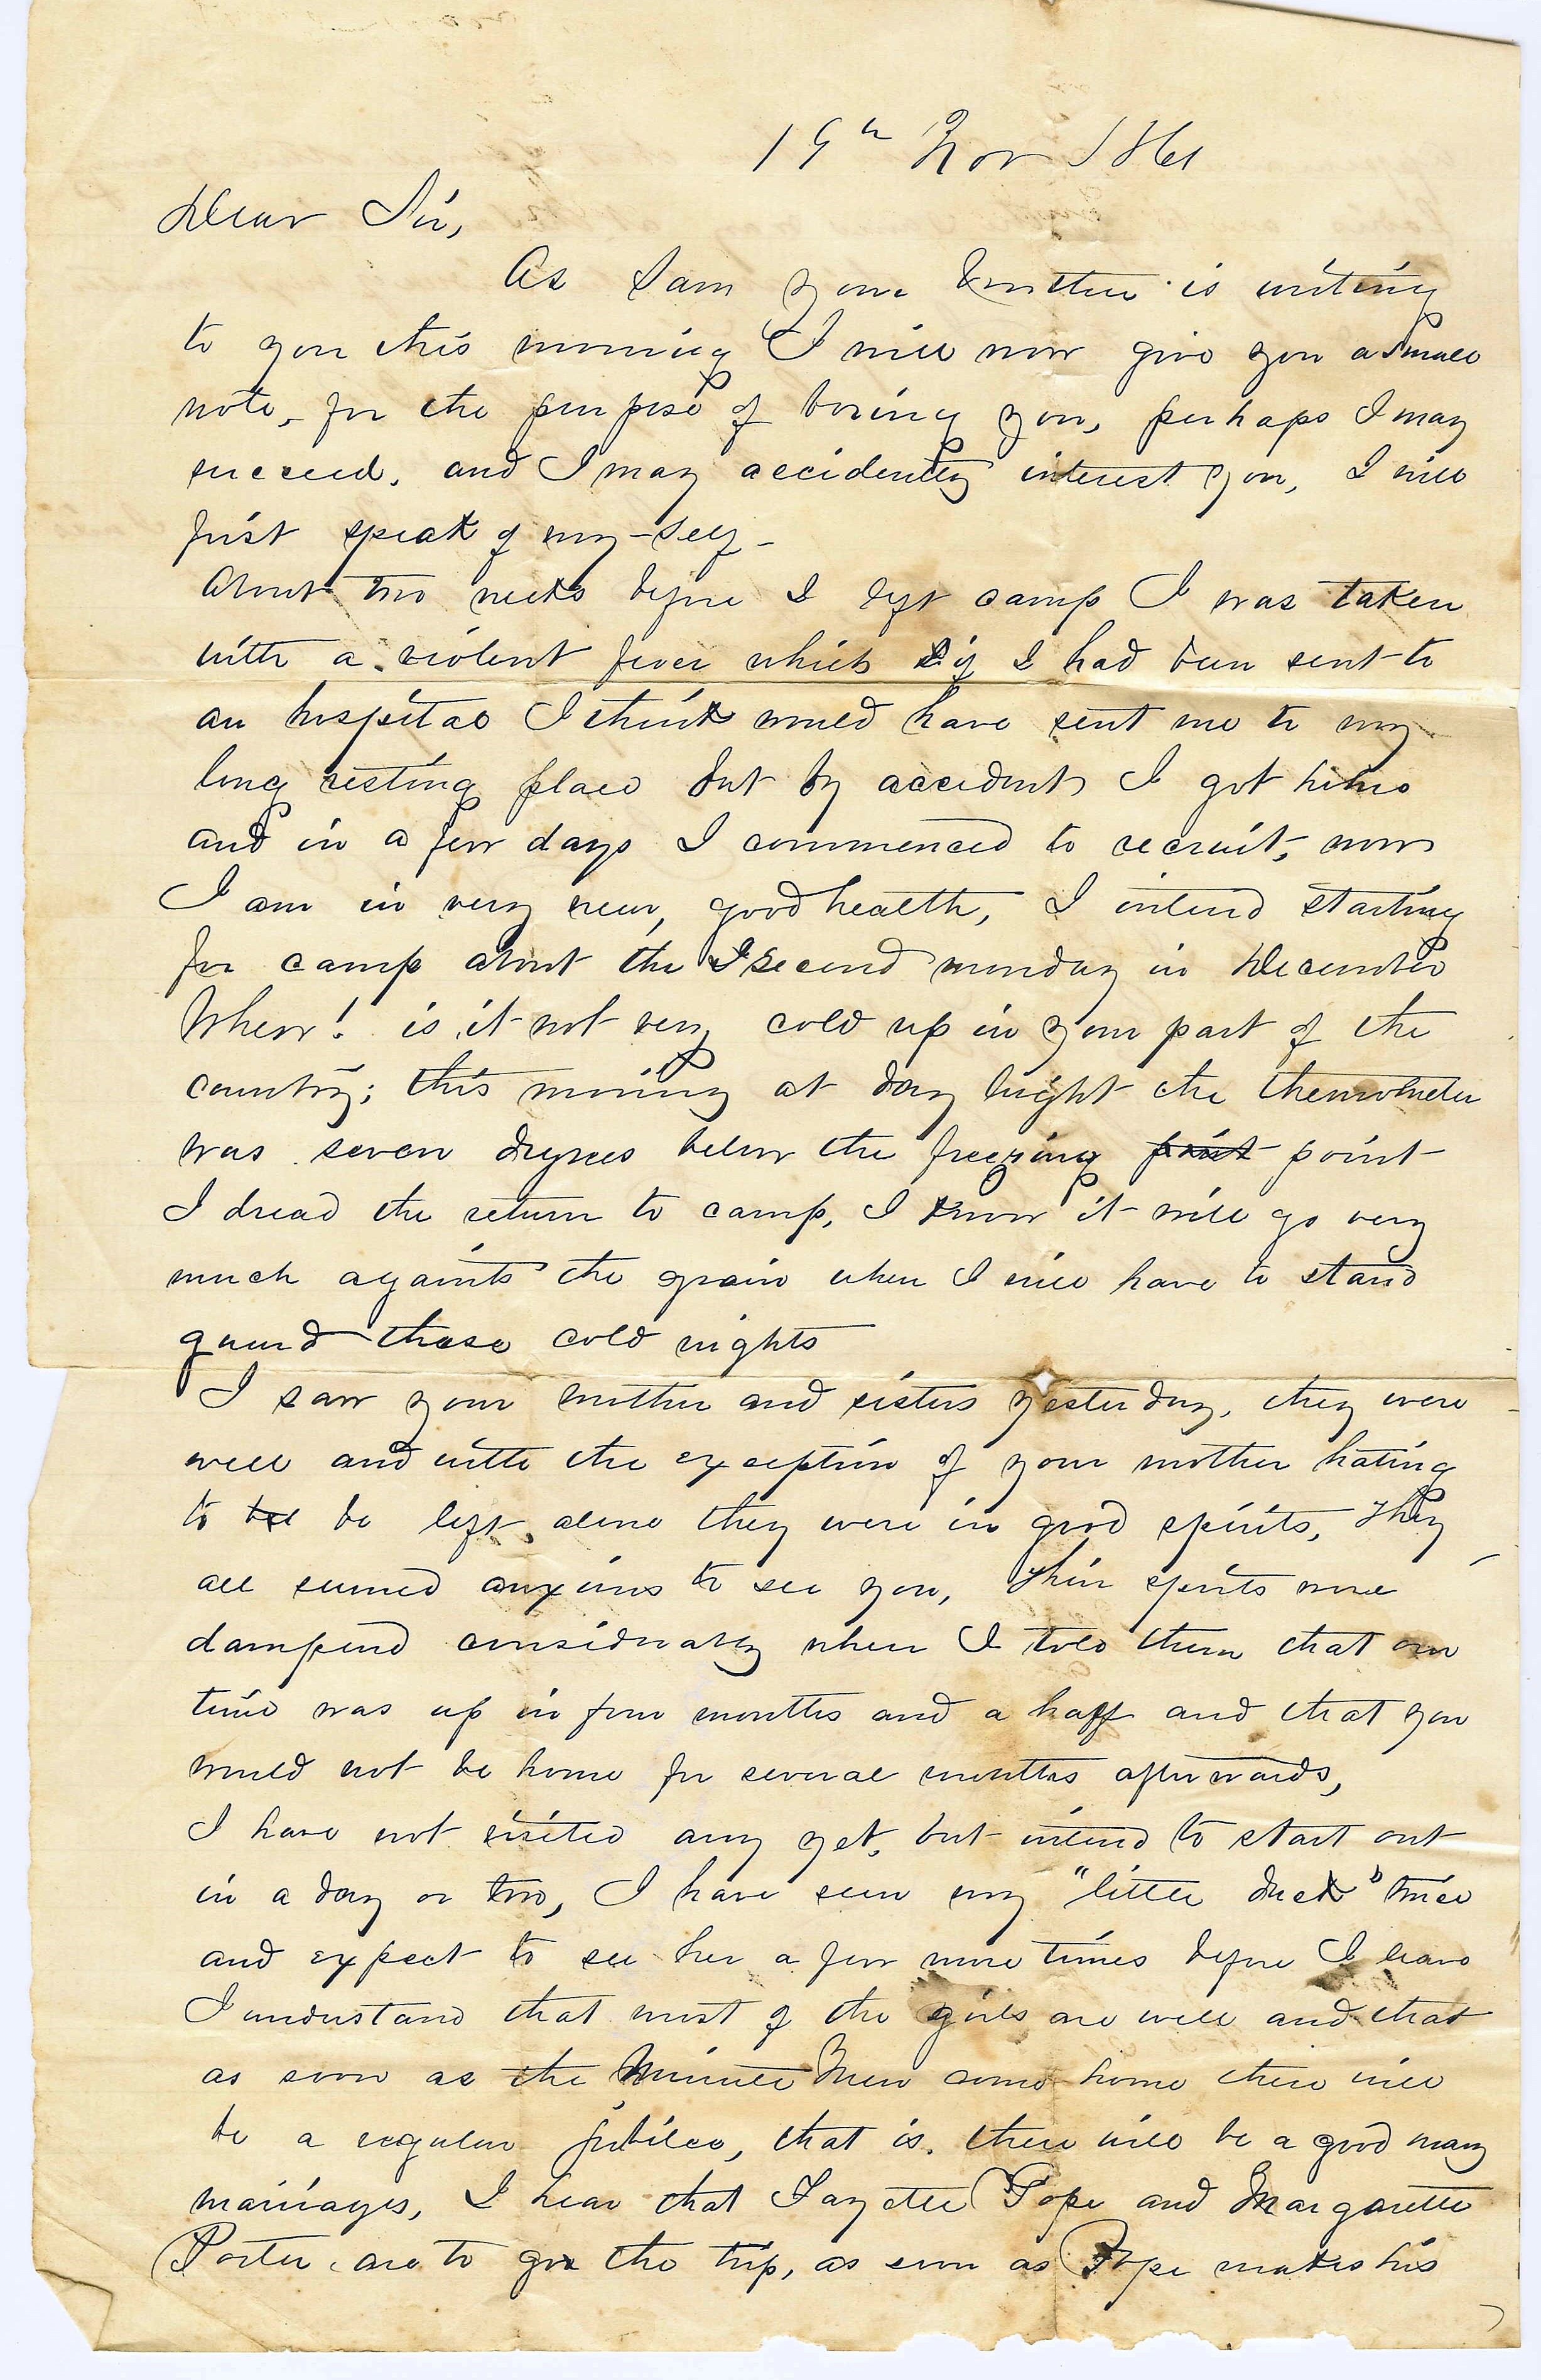 19th Nov 1861
Dear Sir,
As Sam your brother is writing
to you this morning I will now give you a small
note, for the purpose of boring you, perhaps I may
succeed, and I may accidently interest you, I will
first speak of my-self-
About two weeks before I left camp I was taken
with a violent fever which if I had been sent to
an hospital I think would have sent me to my
long resting place but by accident I got home
and in a few days I commenced to recruit, now
I am in very near, good health, I intend starting
for camp about the second monday in December
Whew! is it not very cold up in your part of the
country; this morning at day light the themometer
was seven degrees below the freezing point point
I dread the return to camp, I know it will go very
much againts the grain when I will have to stand
guard these cold nights
I saw your mother and sisters yesterday, they were
well and with the exception of your mother hating
to be left alone they were in good spirits, they
all seemed anxious to see you, their spirits were
dampend considerably when I told them that our
time was up in four months and a haff and that you
would not be home for several months afterwards,
I have not visited any yet, but intend to start out
in a day or two, I have seen my "little duck" twice
and expect to see her a few more times before I leave
I understand that most of the girls are well and that
as soon as the Minute Men come home there will
be a regular jubilee, that is, there will be a good many
marriages, I hear that Fayette Pope and Margarette
Porter are to go the trip, as soon as Pope makes his